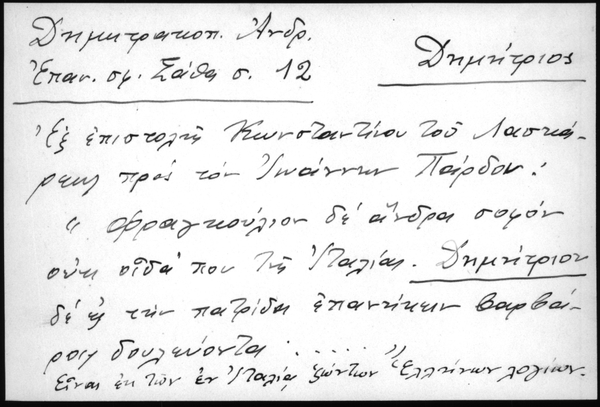 Δημητρακοπ. Ἀνδρ.
Ἐπαν. σφ. Σάθα σ. 12
Δημήτριος
Ἐξ ἐπιστολῆς Κωνσταντίνου τοῦ Λασκά-
ρεως πρὸς τὸν Ἰωάννην Πάρδον:
" Φραγκούλιον δὲ ἄνδρα σοφὸν
οὐκ οἶδά που τῆς Ἰταλίας. Δημήτριον
δὲ ἐς τὴν πατρίδα ἐπανήκειν βαρβά-
ροις δουλεύοντα ....."
Εἶναι ἐκ τῶν ἐν Ἰταλίᾳ ζώντων Ἑλλήνων λογίων.